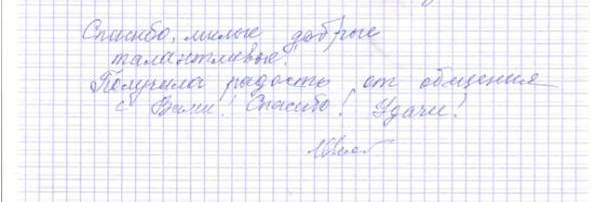 Спасибо, милые добрые
талантливые!
Получила радость от общения
с Вами! Спасибо! Удачи!